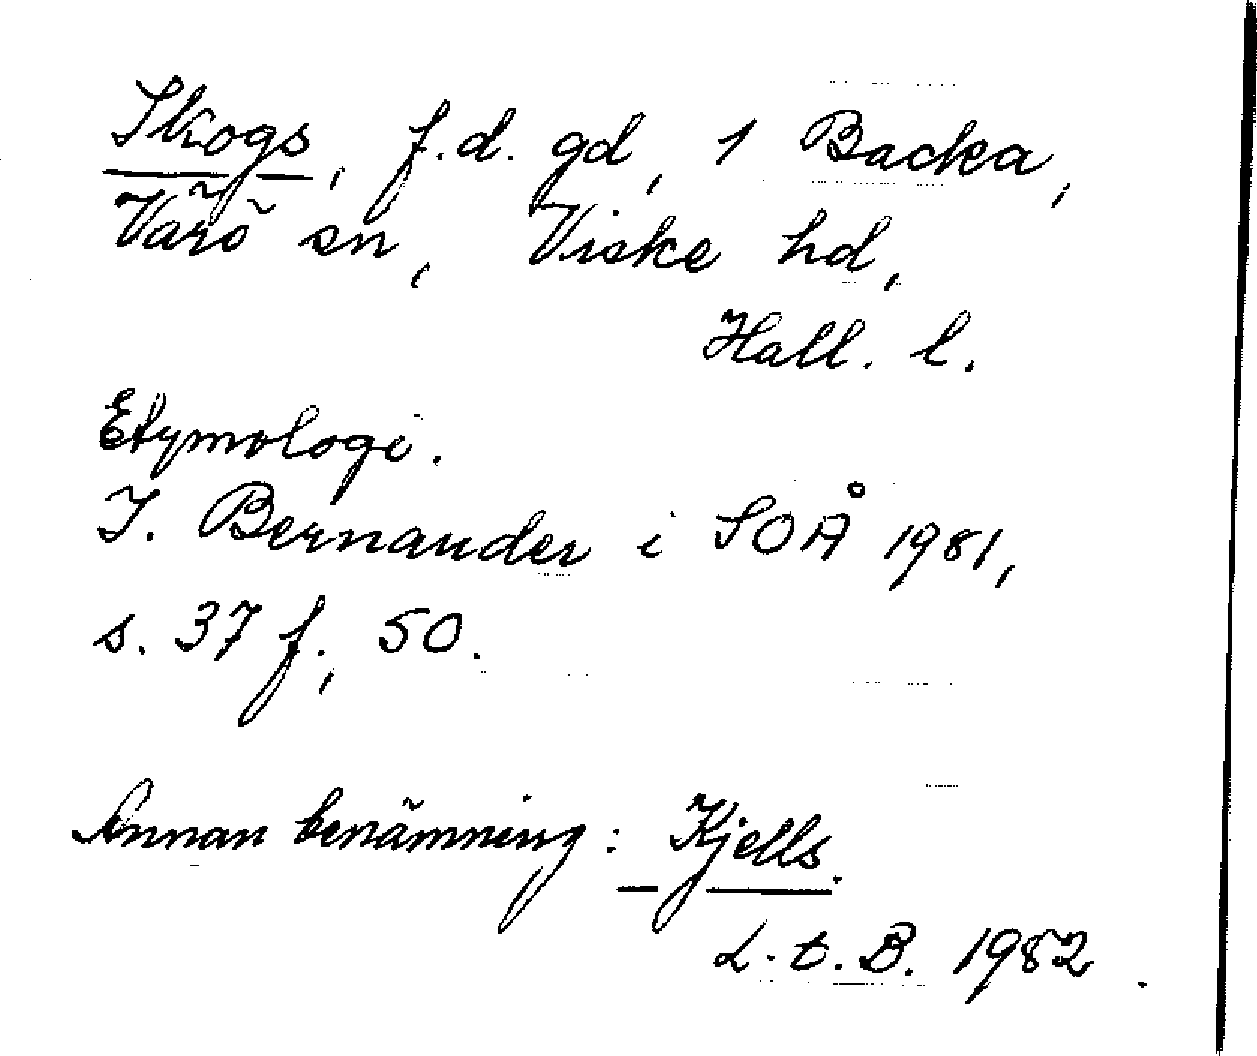 Skogs, f.d. gd, 1 Backa,
Värö sn, Viske hd,
Hall. l.
Etymologi.
I. Bernander i SOÅ 1981,
s. 37 f., 50.
Annan benämning: Kjells.
L.t.B. 1982.